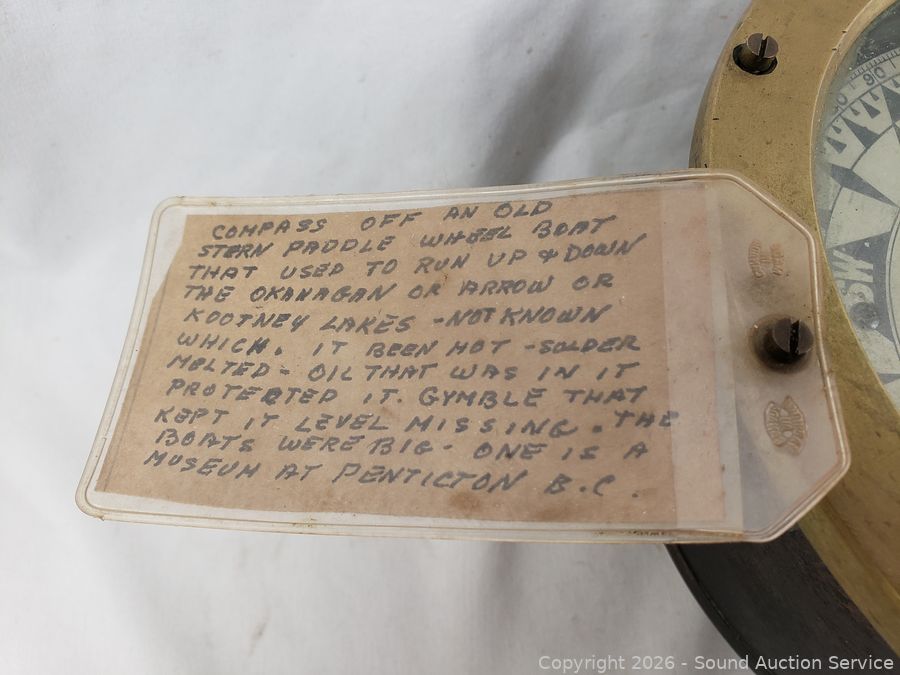 COMPASS OFF AN OLD
STERN PADDLE WHEEL BOAT
THAT USED TO RUN UP & DOWN
THE OKANAGAN OR ARROW OR
KOOTNEY LAKES - NOT KNOWN
WHICH. IT BEEN HOT - SOLDER
MELTED - OIL THAT WAS IN IT
PROTECTED IT. GYMBLE THAT
KEPT IT LEVEL MISSING. THE
BOATS WERE BIG - ONE IS A
MUSEUM AT PENTICTON B.C.
SW
Copyright © 2026 - Sound Auction Service